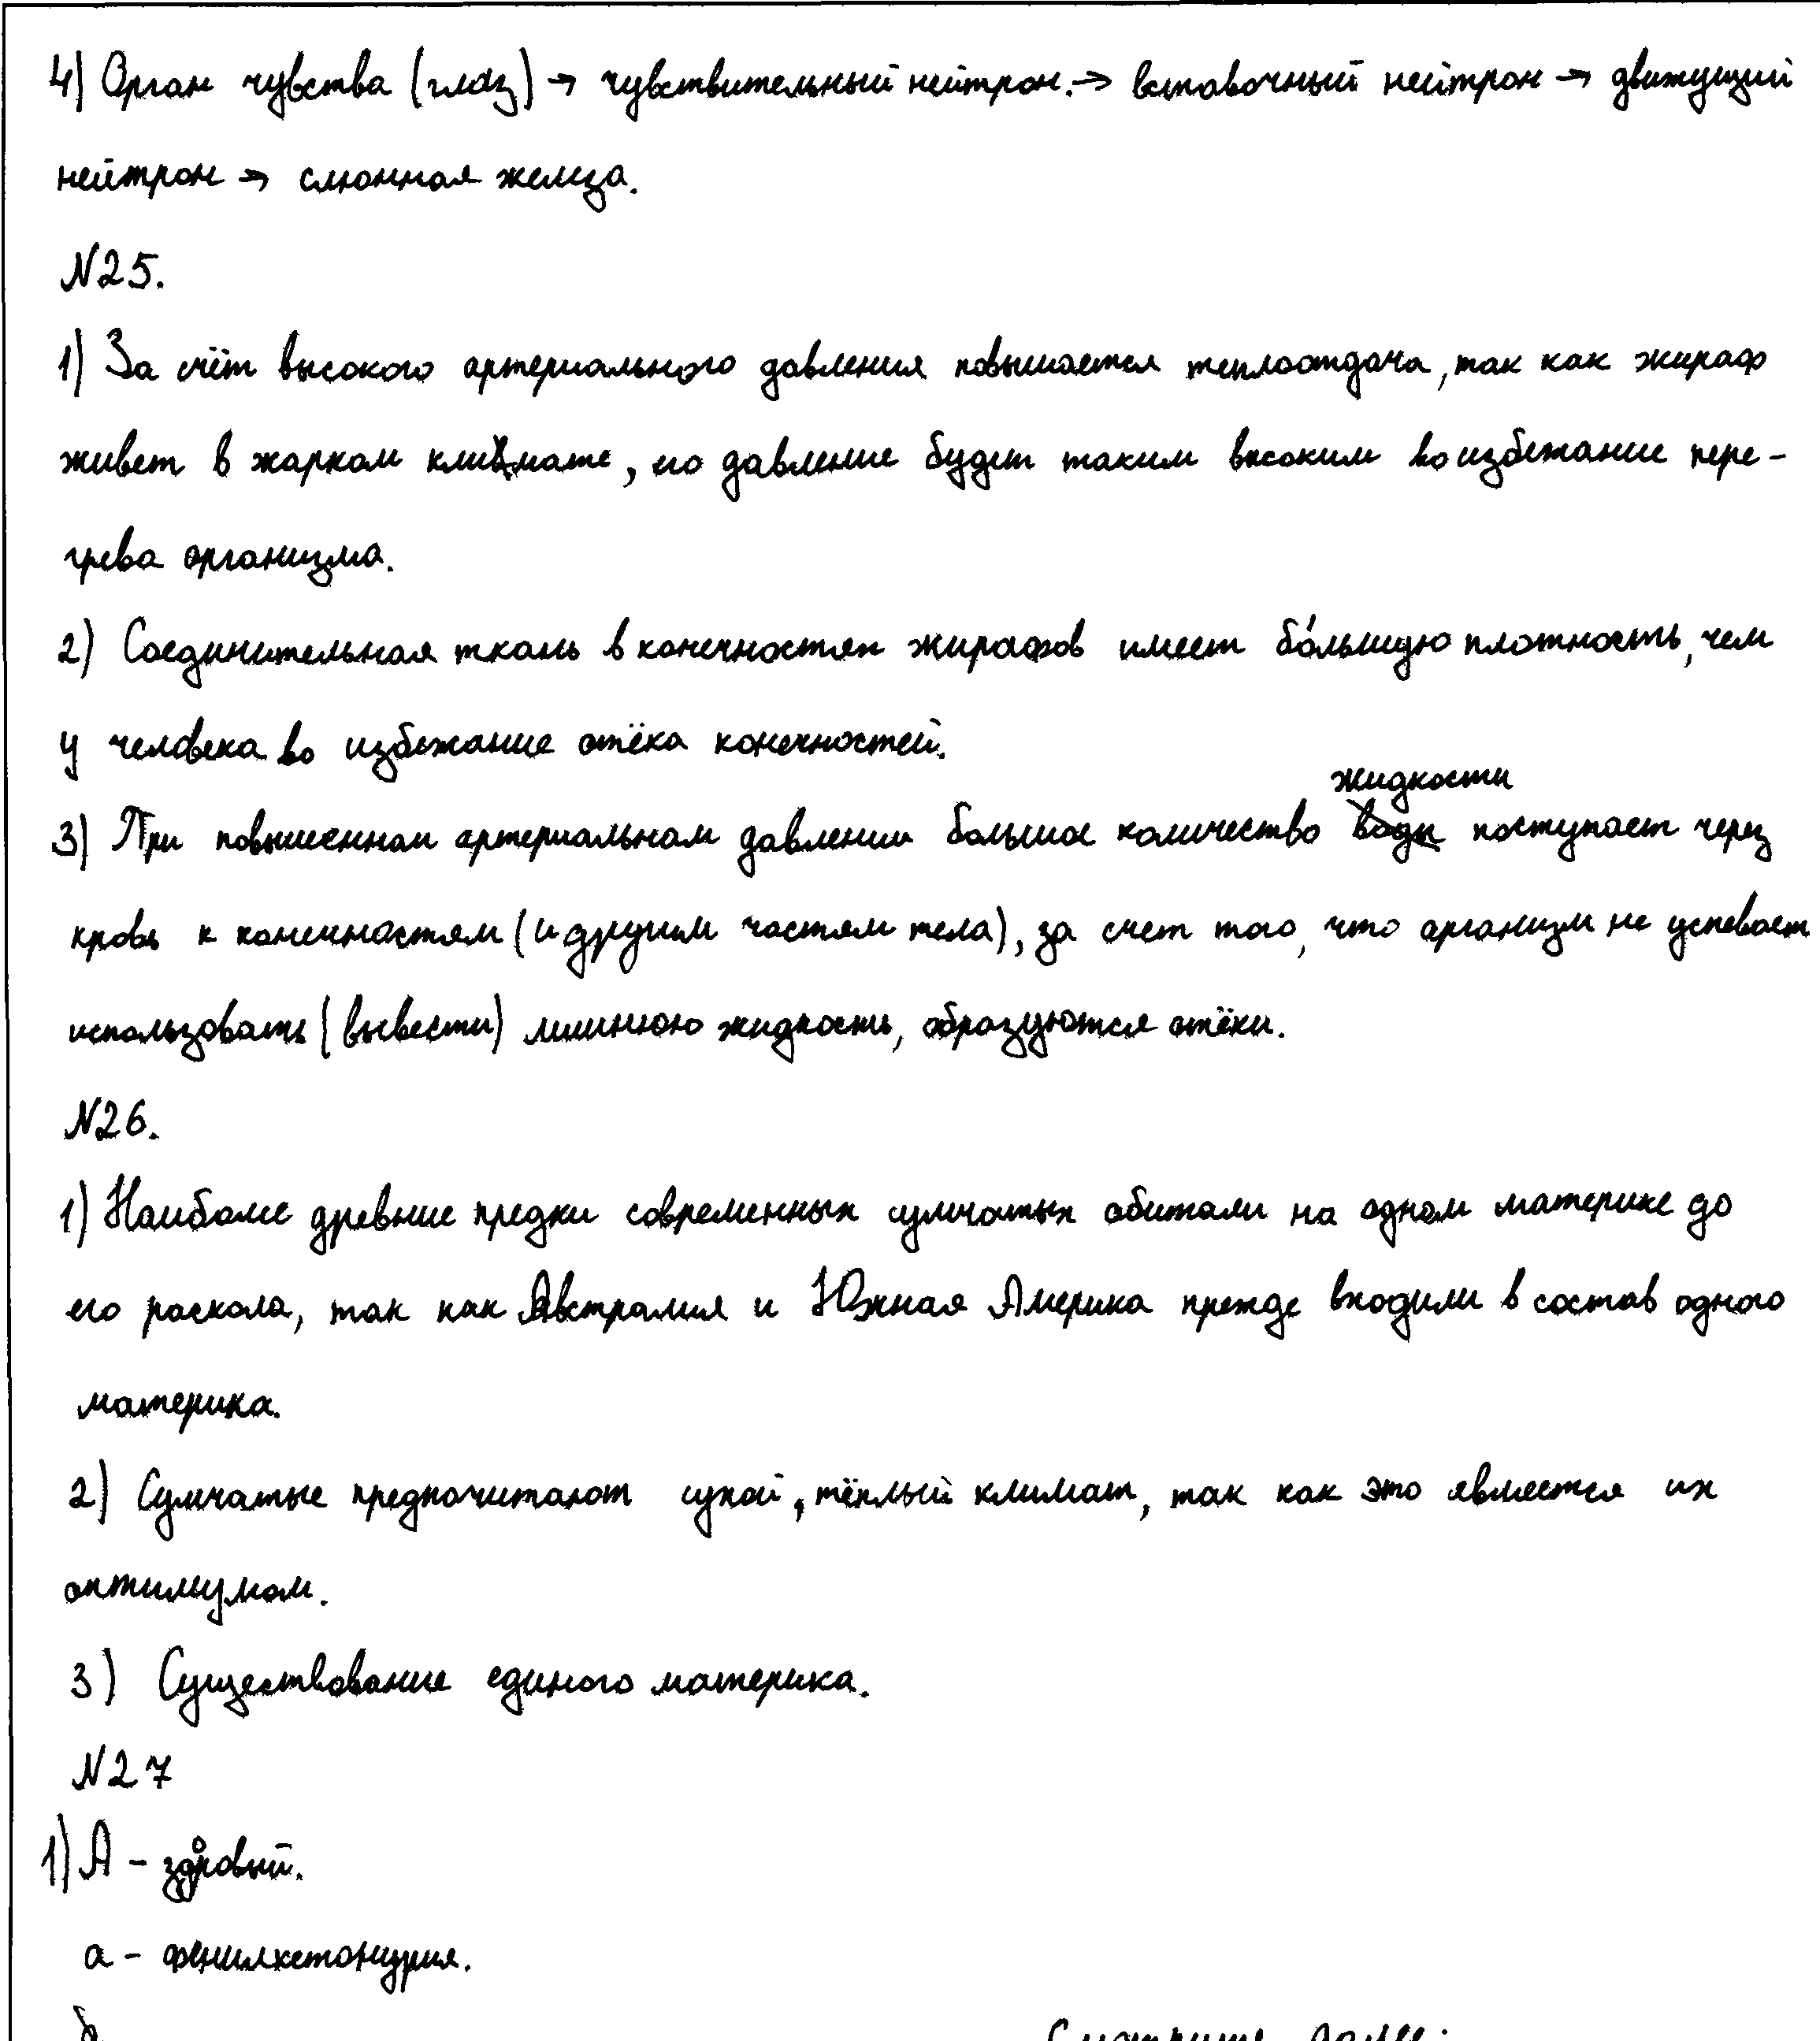 4) Орган чувства (глаз) → чувствительный нейтрон. → вставочный нейтрон → движущий
нейтрон → слюнная железа.
№25.
1) За счёт высокого артериального давления повышается теплоотдача, так как жираф
живет в жарком климате, его давление будет таким высоким во избежание пере-
грева организма.
2) Соединительная ткань в конечностях жирафов имеет бо́льшую плотность, чем
у человека во избежание отёка конечностей.
жидкости
3) При повышенном артериальном давлении большое количество воды поступает через
кровь к конечностям (и другим частям тела), за счет того, что организм не успевает
использовать (вывести) лишнюю жидкость, образуются отёки.
№26.
1) Наиболее древние предки современных сумчатых обитали на одном материке до
его раскола, так как Австралия и Южная Америка прежде входили в состав одного
материка.
2) Сумчатые предпочитают сухой, тёплый климат, так как это является их
оптимумом.
3) Существование единого материка.
№27
1) А - здоровый.
а - фенилкетонурия.